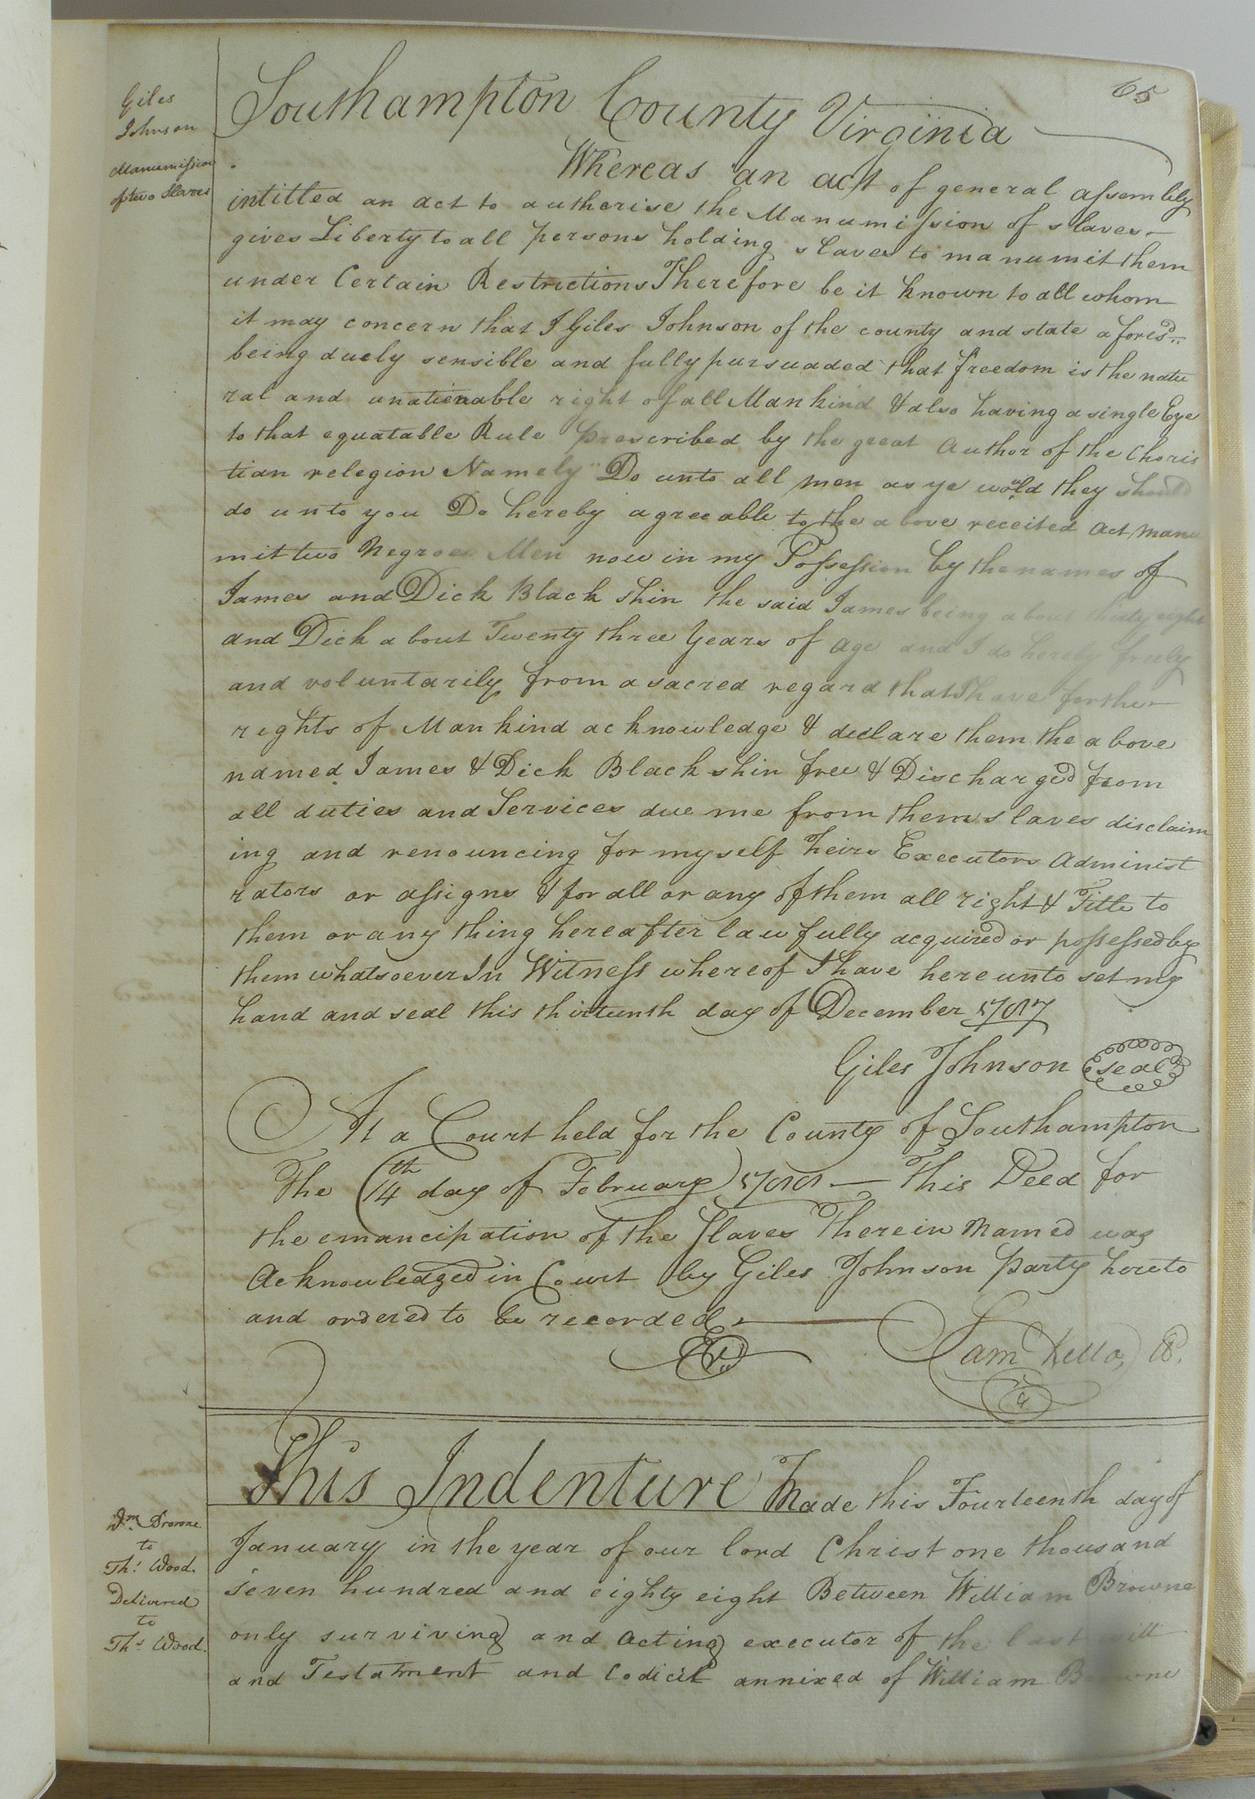 65
Giles
Johnson
Manumission
of two Slaves
Southampton County Virginia
Whereas an act of general assembly
intitled an act to autherise the Manumission of slaves
gives Liberty to all persons holding slaves to manumit them
under Certain Restrictions Therefore be it known to all whom
it may concern that I Giles Johnson of the county and state aforesd
being duely sensible and fully pursuaded that freedom is the natu
ral and unalienable right of all Mankind & also having a single Eye
to that equatable Rule prescribed by the great Author of the Chris
tian relegion Namely Do unto all men as ye would they should
do unto you Do hereby agreeable to the above receited Act manu
mit two Negroe Men now in my Possession by the names of
James and Dick Black shin the said James being about thirty eight
and Dick about Twenty three Years of Age and I do hereby freely
and voluntarily from a sacred regard that I have for the
rights of Mankind acknowledge & declare them the above
named James & Dick Black shin free & Discharged from
all duties and Services due me from them slaves disclaim
ing and renouncing for myself heirs Executors Administ
rators or assigns & for all or any of them all right & Title to
them or any thing hereafter lawfully acquired or possessed by
them whatsoever In Witness whereof I have hereunto set my
hand and seal this thirteenth day of December 1787
Giles Johnson seal
At a Court held for the County of Southampton
The 14th day of February 1788 — This Deed for
the emancipation of the slaves Therein Named was
Acknowledged in Court by Giles Johnson party hereto
and ordered to be recorded
Sam Kello
This Indenture Made this Fourteenth day of
Wm Browne
to
Ths Wood.
Delivered
to
Ths Wood.
January in the year of our lord Christ one thousand
seven hundred and eighty eight Between William Browne
only surviving and Acting executor of the last will
and Testatment and Codicil annixed of William Browne